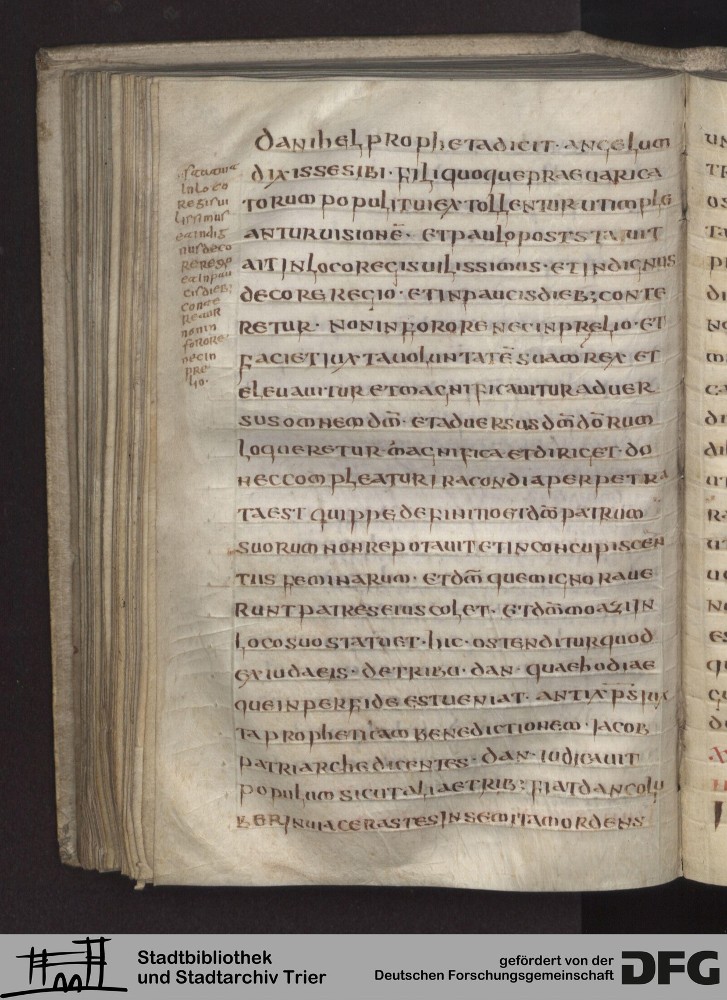 danihel propheta dicit · angelum
dixisse sibi · filii quoque praeuarica
torum populi tui extollentur ut imple
antur uisionē · et paulo post stauit
ait in loco regis uilissimus · et indignus
decore regio · et in paucis dieb; conte
retur · non in forore nec in prelio · et
faciet iuxta uoluntatē suam rex et
eleuauitur et magnificauitur aduer
sus omnem dm̄ · et aduersus dm̄ dōrum
loqueretur magnifica et diriget · do
nec compleatur iracondia perpetra
ta est quippe definitio et dm̄ patrum
suorum non repotauit et in concupiscen
tiis feminarum · et dm̄ quem ignoraue
runt patres eius colet · et dm̄ moazi in
loco suo statuet · hic · ostenditur quod
ex iudaeis · de tribu · dan · quae hodiae
que in perfide est ueniat · antix p̄s iux
ta propheticam benedictionem · iacob
patriarche dicentes · dan · iudicauit
populum sicut alia et rib; fiat dan colu
ber in uia cerastes in semita mordens
in loco
regis ui
lissimus
et indig
nus deco
re reg
et in pau
cis dieb;
conte
retur
non in
forore
nec in
pre
lio ·
Stadtbibliothek
und Stadtarchiv Trier
gefördert von der
Deutschen Forschungsgemeinschaft
DFG